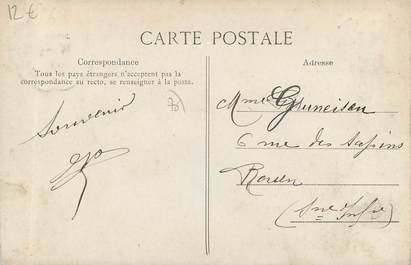 12€
CARTE POSTALE
Correspondance
Tous les pays étrangers n'acceptent pas la
correspondance au recto, se renseigner à la poste.
Souvenir
Adresse
Mme Gruneisen
6 rue des Sapins
Rouen
(Sne Infre)